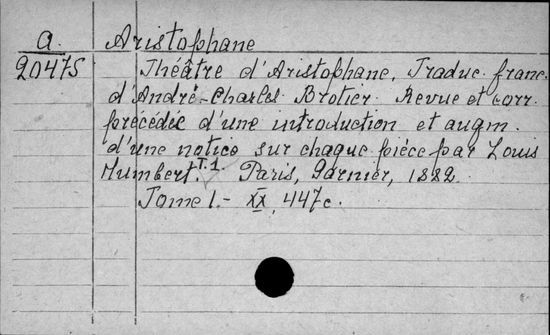 A. Aristophane
20475 Théâtre d'Aristophane. Traduc. franc.
d'André-Charles Brotier. Revue et corr.
précédée d'une introduction et augm.
d'une notice sur chaque pièce par Louis
Humbert. T.1 Paris, Garnier, 1882.
Tome 1.- XX, 447c.